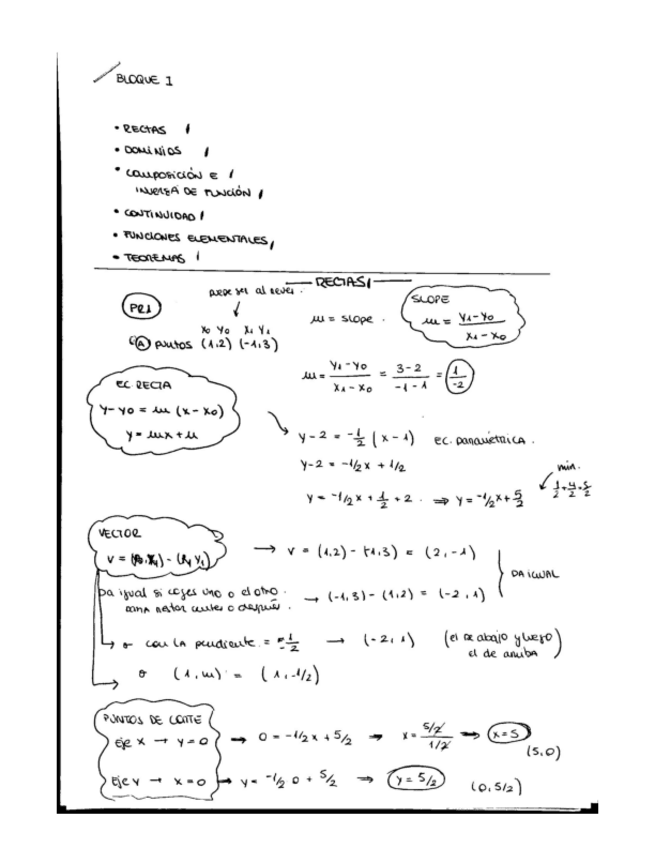 BLOQUE I
• RECTAS
• DOMINIOS
• COMPOSICIÓN E
INVERSA DE FUNCIÓN
• CONTINUIDAD
• FUNCIONES ELEMENTALES
• TEOREMAS
RECTAS
puede ser al revés.
PR1
m = slope.
SLOPE
m = (y₁-y₀)/(x₁-x₀)
x₀ y₀ x₁ y₁
A puntos (1,2) (-1,3)
m = (y₁-y₀)/(x₁-x₀) = (3-2)/(-1-1) = 1/-2
EC. RECTA
y-y₀ = m (x-x₀)
y = mx+n
y-2 = -1/2 (x-1) ec. paramétrica.
y-2 = -1/2x + 1/2
y = -1/2x + 1/2 + 2. ⇒ y = -1/2x + 5/2
min.
1/2+4/2=5/2
VECTOR
→ v = (1,2) - (-1,3) = (2,-1)
Da igual si coges uno o el otro.
para restar antes o después.
→ (-1,3) - (1,2) = (-2,1)
DA IGUAL
→ o con la pendiente = 1/-2 → (-2,1) (el de abajo y luego
el de arriba)
o (1,m) = (1,-1/2)
PUNTOS DE CORTE
Eje x → y=0 → 0 = -1/2x + 5/2 → x = (5/2)/(1/2) → x=5
(5,0)
Eje y → x=0 → y = -1/2 0 + 5/2 → y=5/2 (0,5/2)